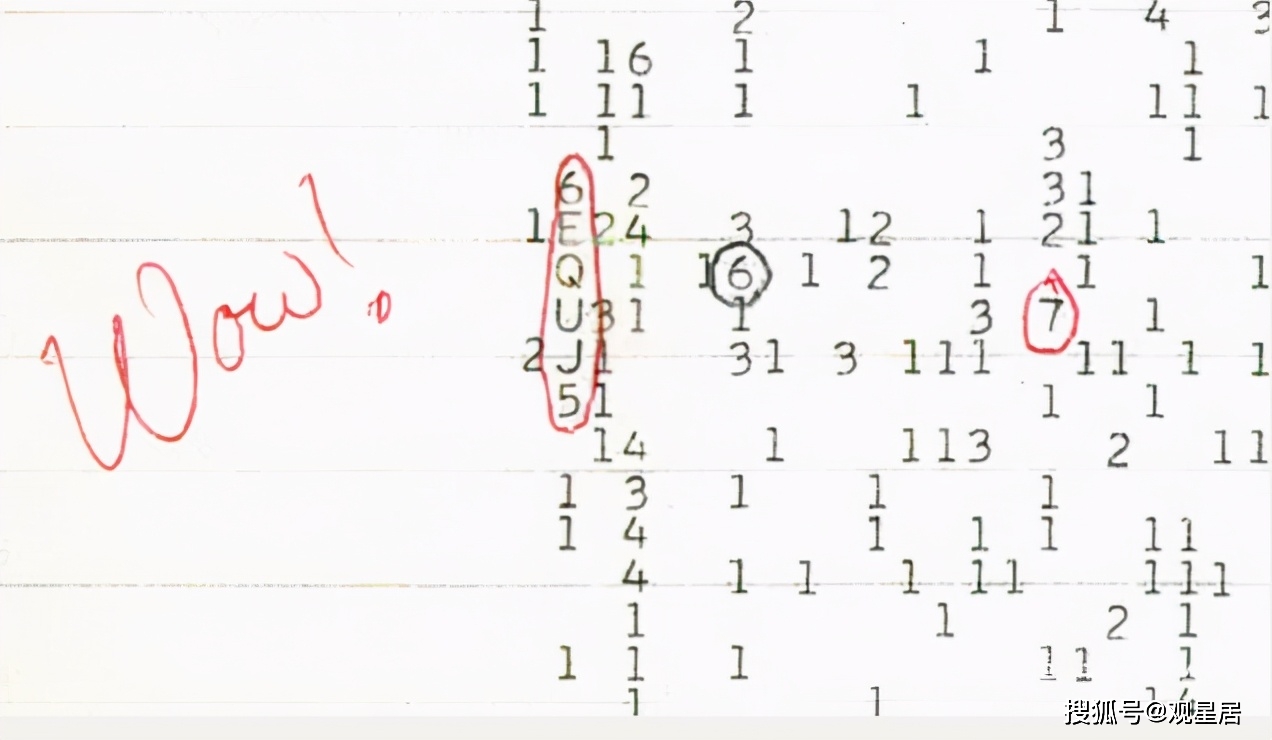 1 2 1 4 3
1 16 1 1 1
1 11 1 1 11 1
1 3 1
6 2 31
1E24 3 12 1 21 1
Q 1 16 1 2 1 1 1
U31 1 3 7 1
2J1 31 3 111 11 1 1
51 1 1
14 1 113 2 11
1 3 1 1 1
1 4 1 1 1 11
4 1 1 1 11 111
1 1 2 1
1 1 1 11 1
1 1 14
Wow!
搜狐号@观星居